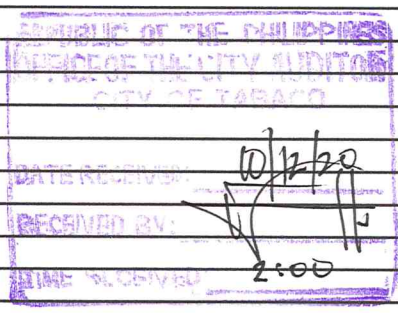 REPUBLIC OF THE PHILIPPINES
OFFICE OF THE CITY AUDITOR
CITY OF TABACO
DATE RECEIVED: 10/12/20
RECEIVED BY:
TIME RECEIVED: 2:00